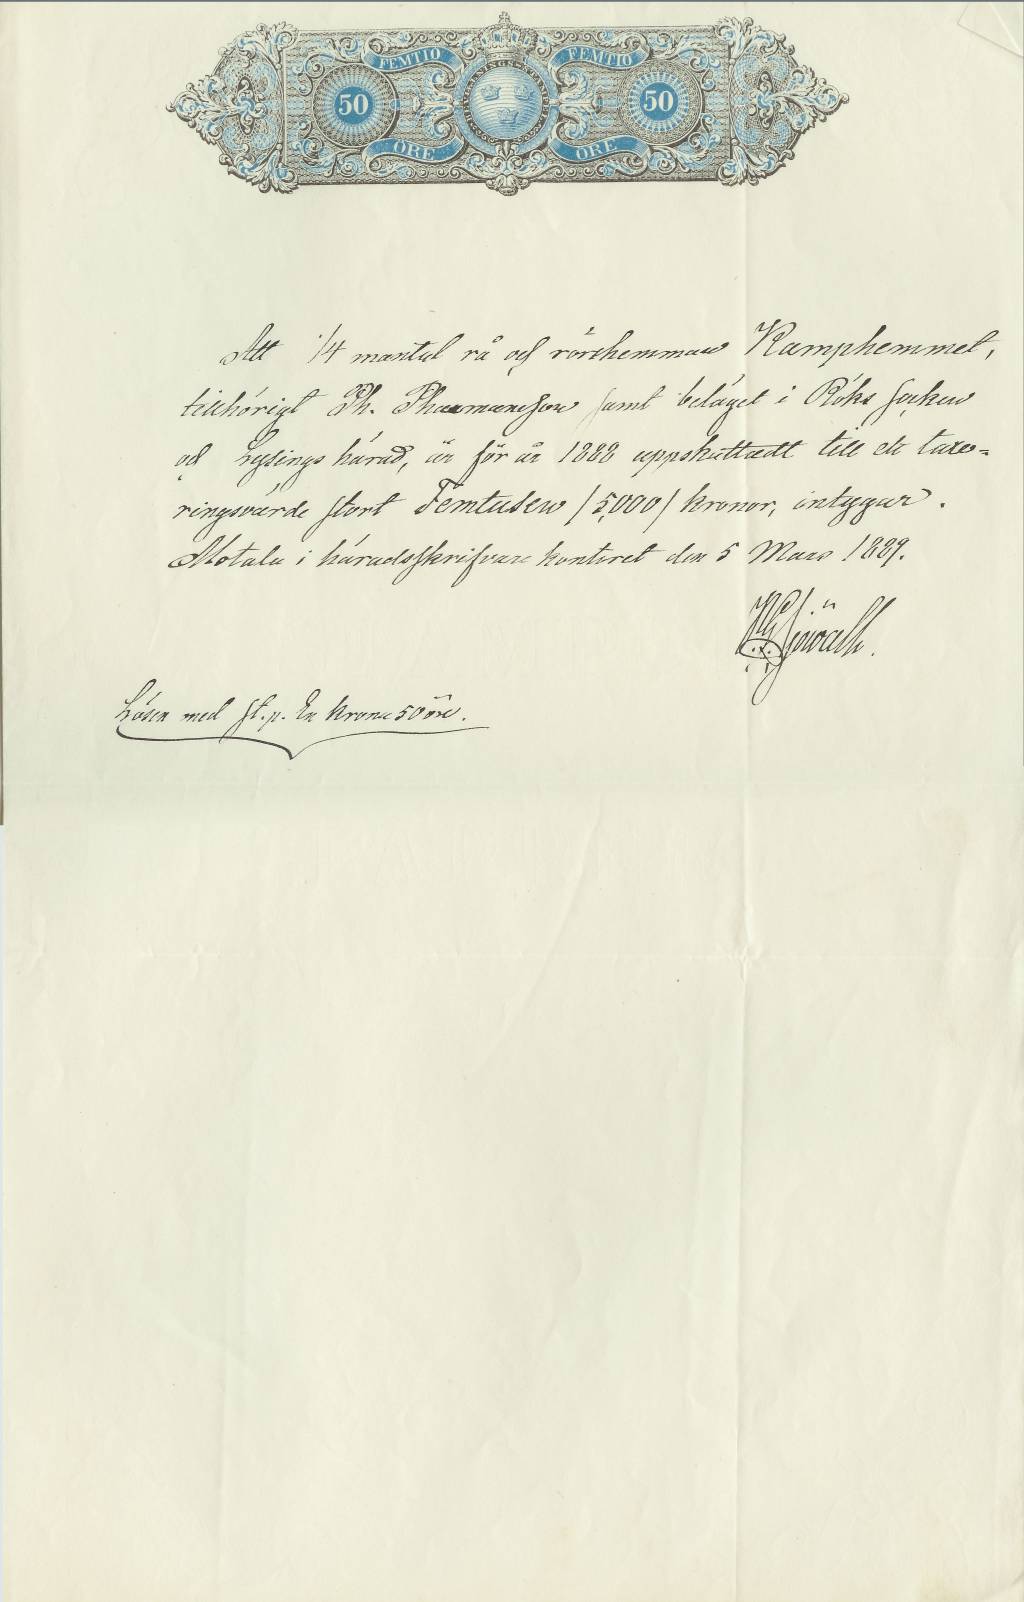 FEMTIO FEMTIO
50 50
ÖRE ÖRE
Att 1/4 mantal rå och rörshemman Kamphemmet,
tillhörigt Th. samt beläget i Röks socken
och Lysings härad, är för år 1888 uppskattadt till ett taxe=
ringsvärde stort Femtusen /5,000/ kronor, intygar.
Motala i häradsskrifvare kontoret den 5 Mars 1889.
Lösen med st.p. En krona 50 öre.